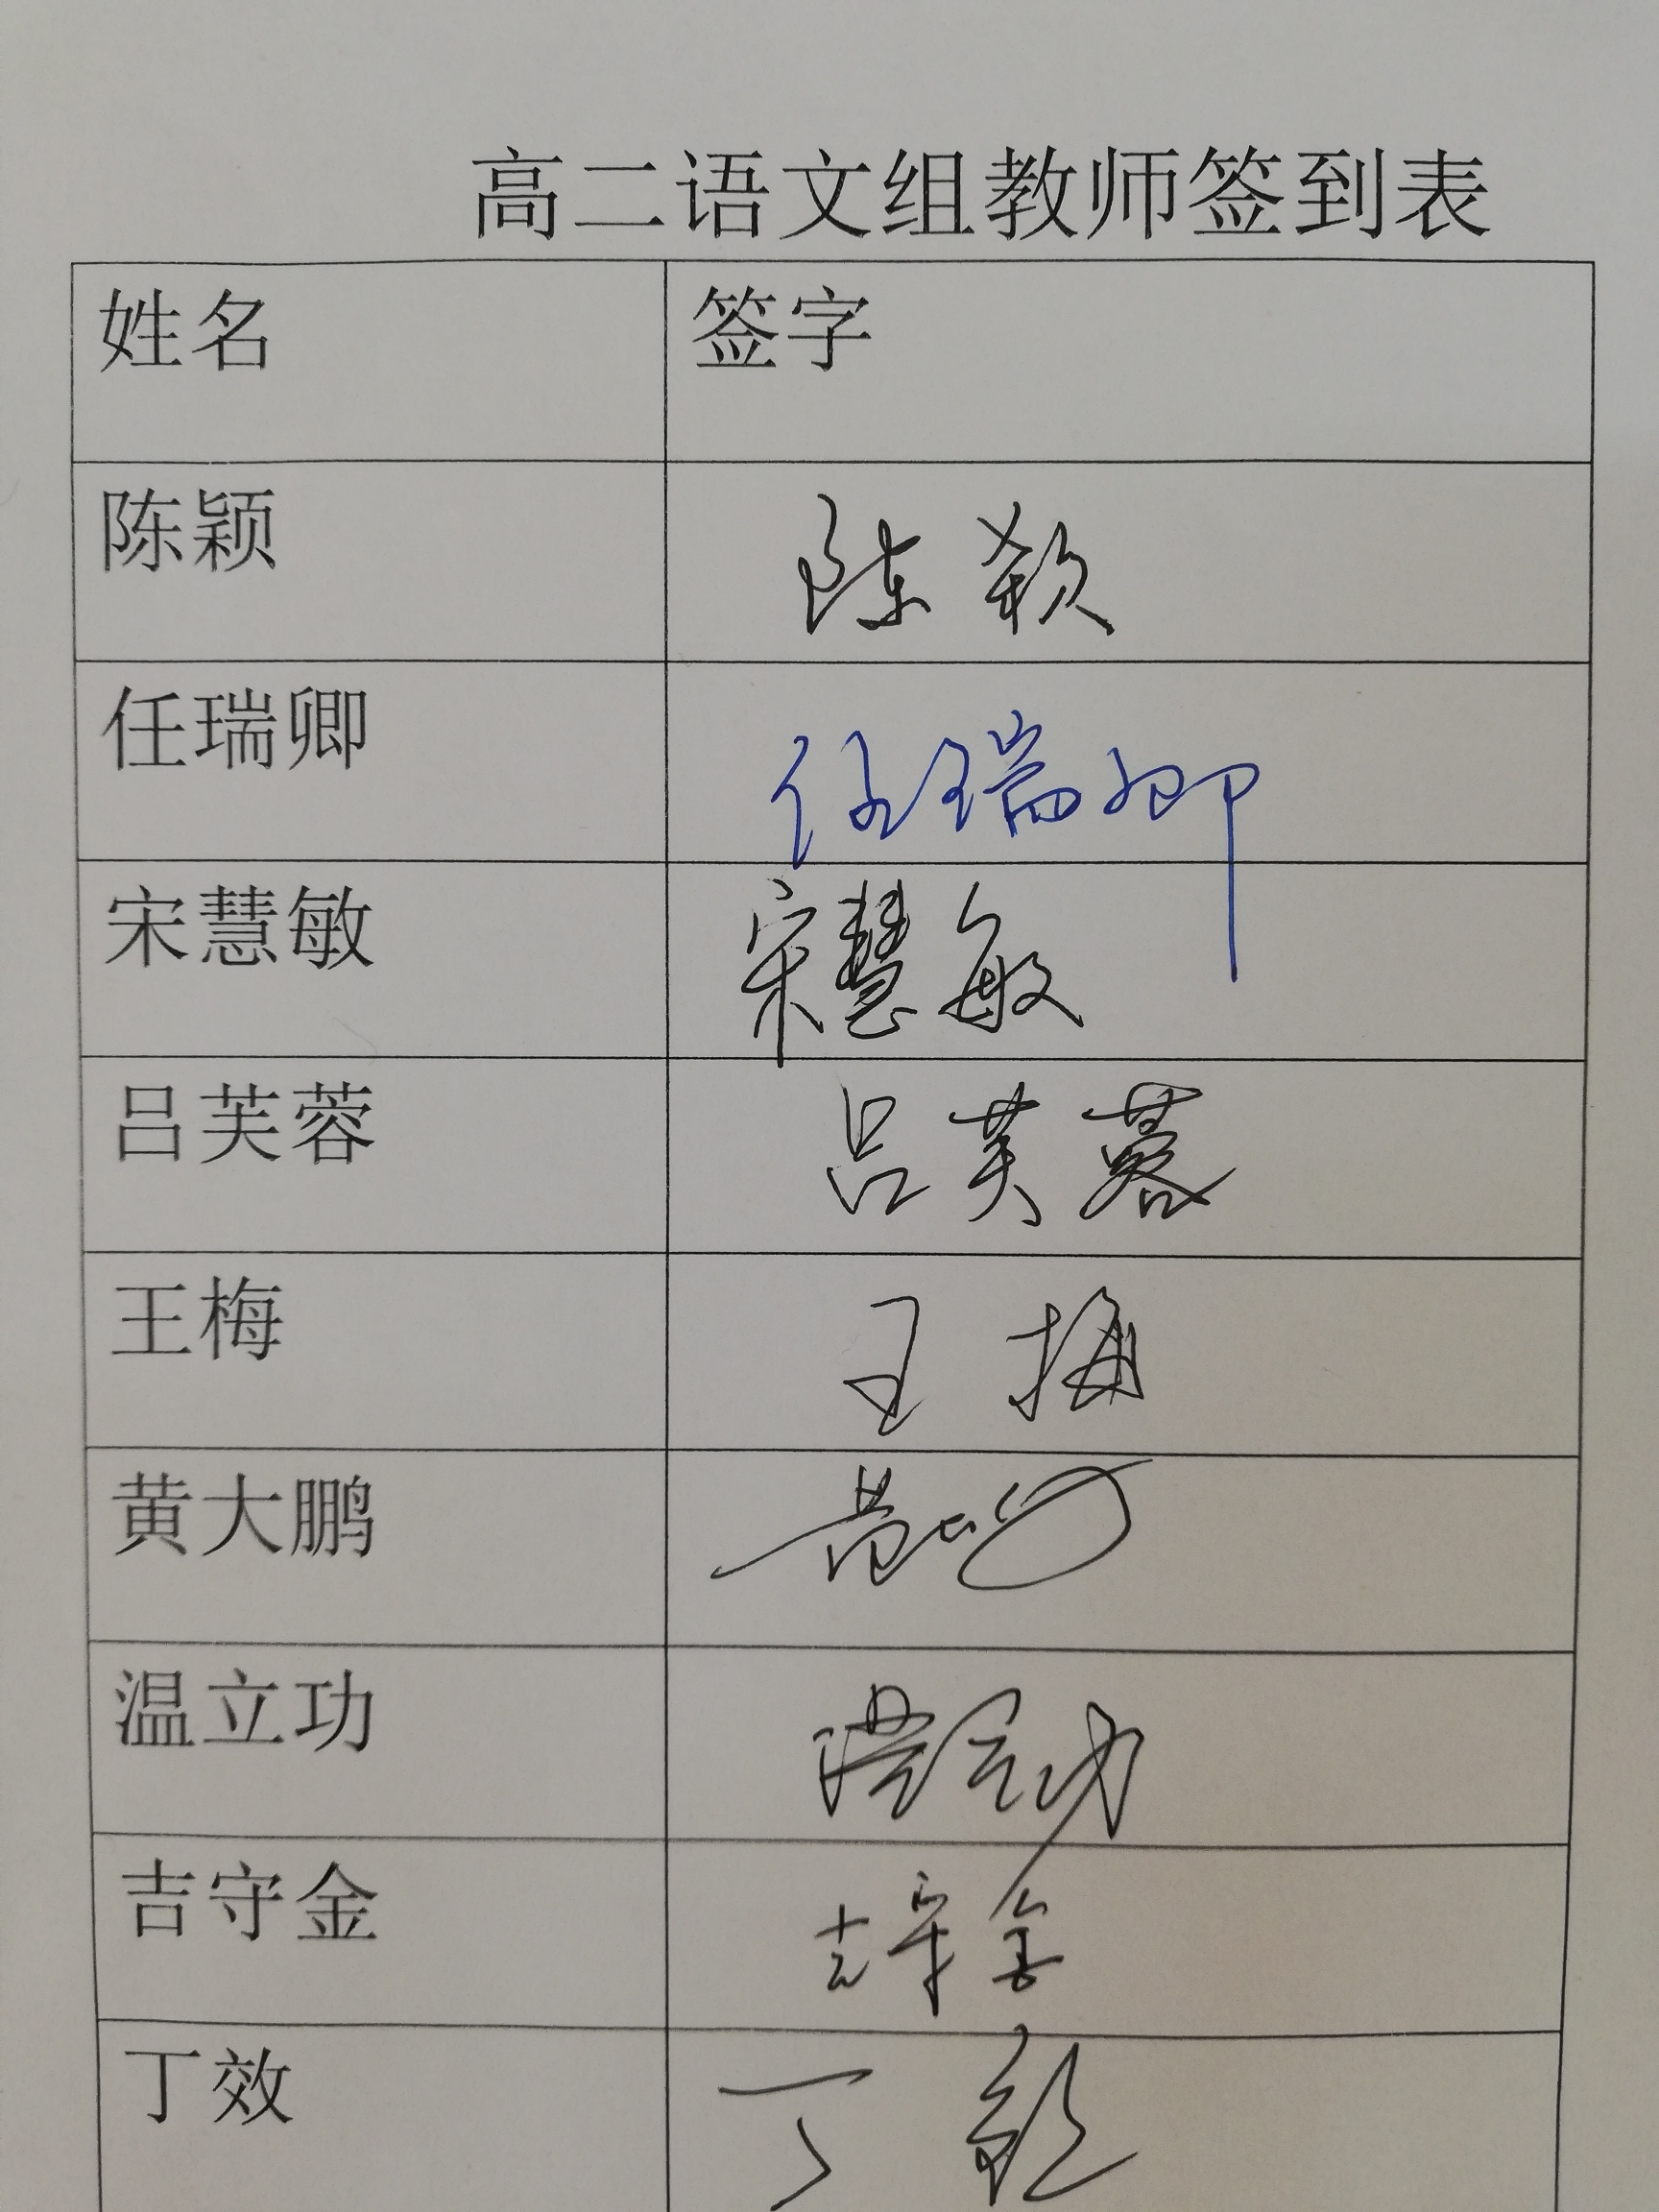 高二语文组教师签到表
姓名 签字
陈颖 陈颖
任瑞卿 任瑞卿
宋慧敏 宋慧敏
吕芙蓉 吕芙蓉
王梅 王梅
黄大鹏 黄大鹏
温立功 温立功
吉守金 吉守金
丁效 丁效